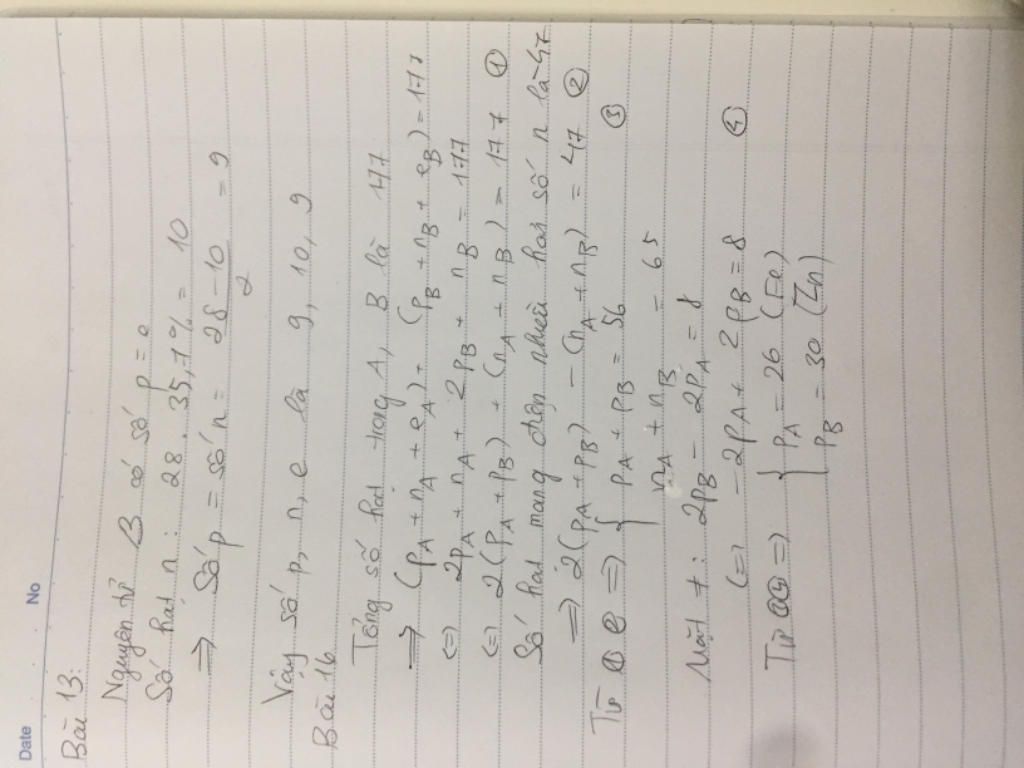 Date No
Bài 13:
Nguyên tử B có số p = e
Số hạt n : 28 . 35,7% = 10
⇒ Số p = số n = (28 - 10) / 2 = 9
Vậy số p, n, e là 9, 10, 9
Bài 16.
Tổng số hạt trong A, B là 177
⇒ (pA + nA + eA) + (pB + nB + eB) = 177
(=) 2pA + nA + 2pB + nB = 177
(=) 2(pA + pB) + (nA + nB) = 177 ①
Số hạt mang điện nhiều hơn số n là 47
=) 2(pA + pB) - (nA + nB) = 47 ②
Từ ① ② =) { pA + pB = 56 ③
nA + nB = 65
Mặt ≠ : 2pB - 2pA = 8
(=) -2pA + 2pB = 8 ④
Từ ③④ =) { pA = 26 (Fe)
pB = 30 (Zn)